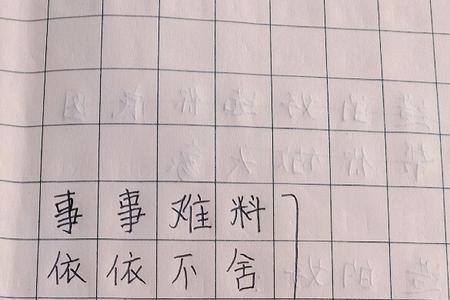 事事难料
依依不舍